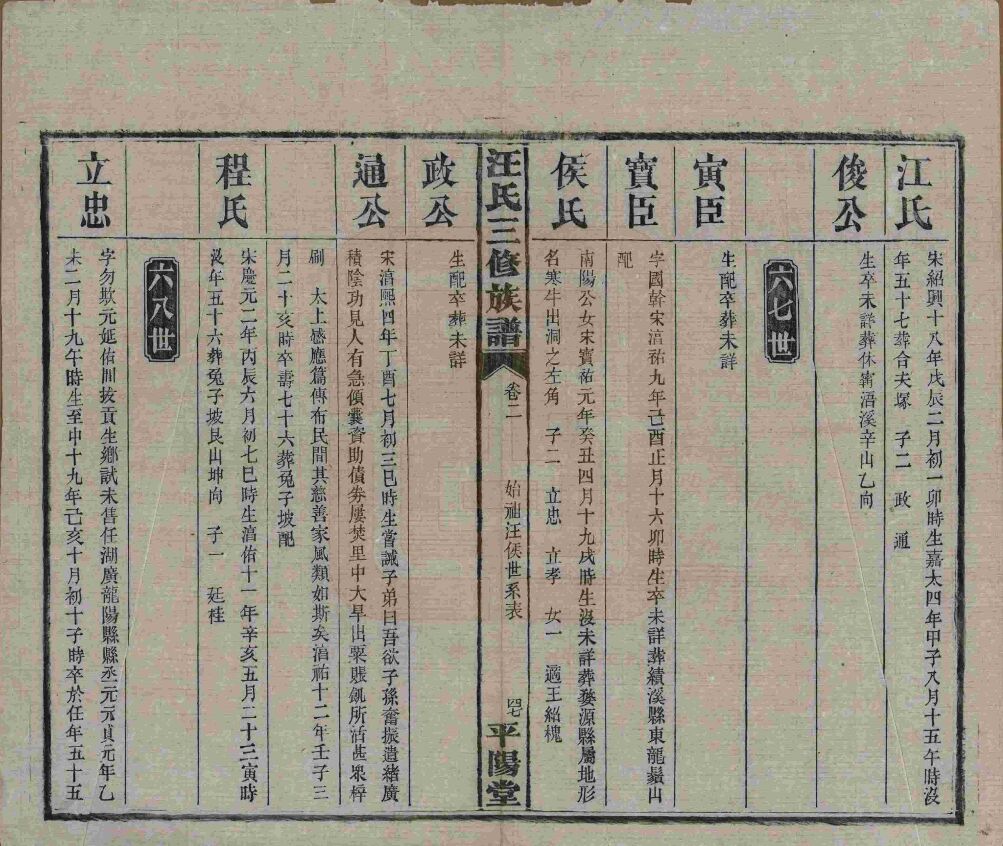 江氏
宋紹興十八年戊辰二月初一卯時生嘉太四年甲子八月十五午時沒
年五十七葬合夫塚　子二　政　通
俊公
生卒未詳葬休甯浯溪辛山乙向
六七世
寅臣
生配卒葬未詳
寶臣
字國幹宋淳祐九年己酉正月十六卯時生卒未詳葬績溪縣東龍鬚山
配
侯氏
南陽公女宋寶祐元年癸丑四月十九戌時生沒未詳葬婺源縣屬地形
名寒牛出洞之左角　子二　立忠　立孝　女一　適王紹槐
汪氏三修族譜
卷二
始祖汪侯世系表
四七
平陽堂
政公
生配卒葬未詳
通公
宋淳熙四年丁酉七月初三巳時生嘗誡子弟曰吾欲子孫奮振遺緒廣
積陰功見人有急傾囊資助債劵屢焚里中大旱出粟賬飢所活甚眾梓
刷　太上感應篇傳布民間其慈善家風類如斯矣淳祐十二年壬子三
月二十亥時卒壽七十六葬兔子坡配
程氏
宋慶元二年丙辰六月初七巳時生淳佑十一年辛亥五月二十三寅時
沒年五十六葬兔子坡艮山坤向　子一　廷桂
六八世
立忠
字勿欺元延佑間拔貢生鄉試未售任湖廣龍陽縣縣丞元元貞元年乙
未二月十九午時生至中十九年己亥十月初十子時卒於任年五十五